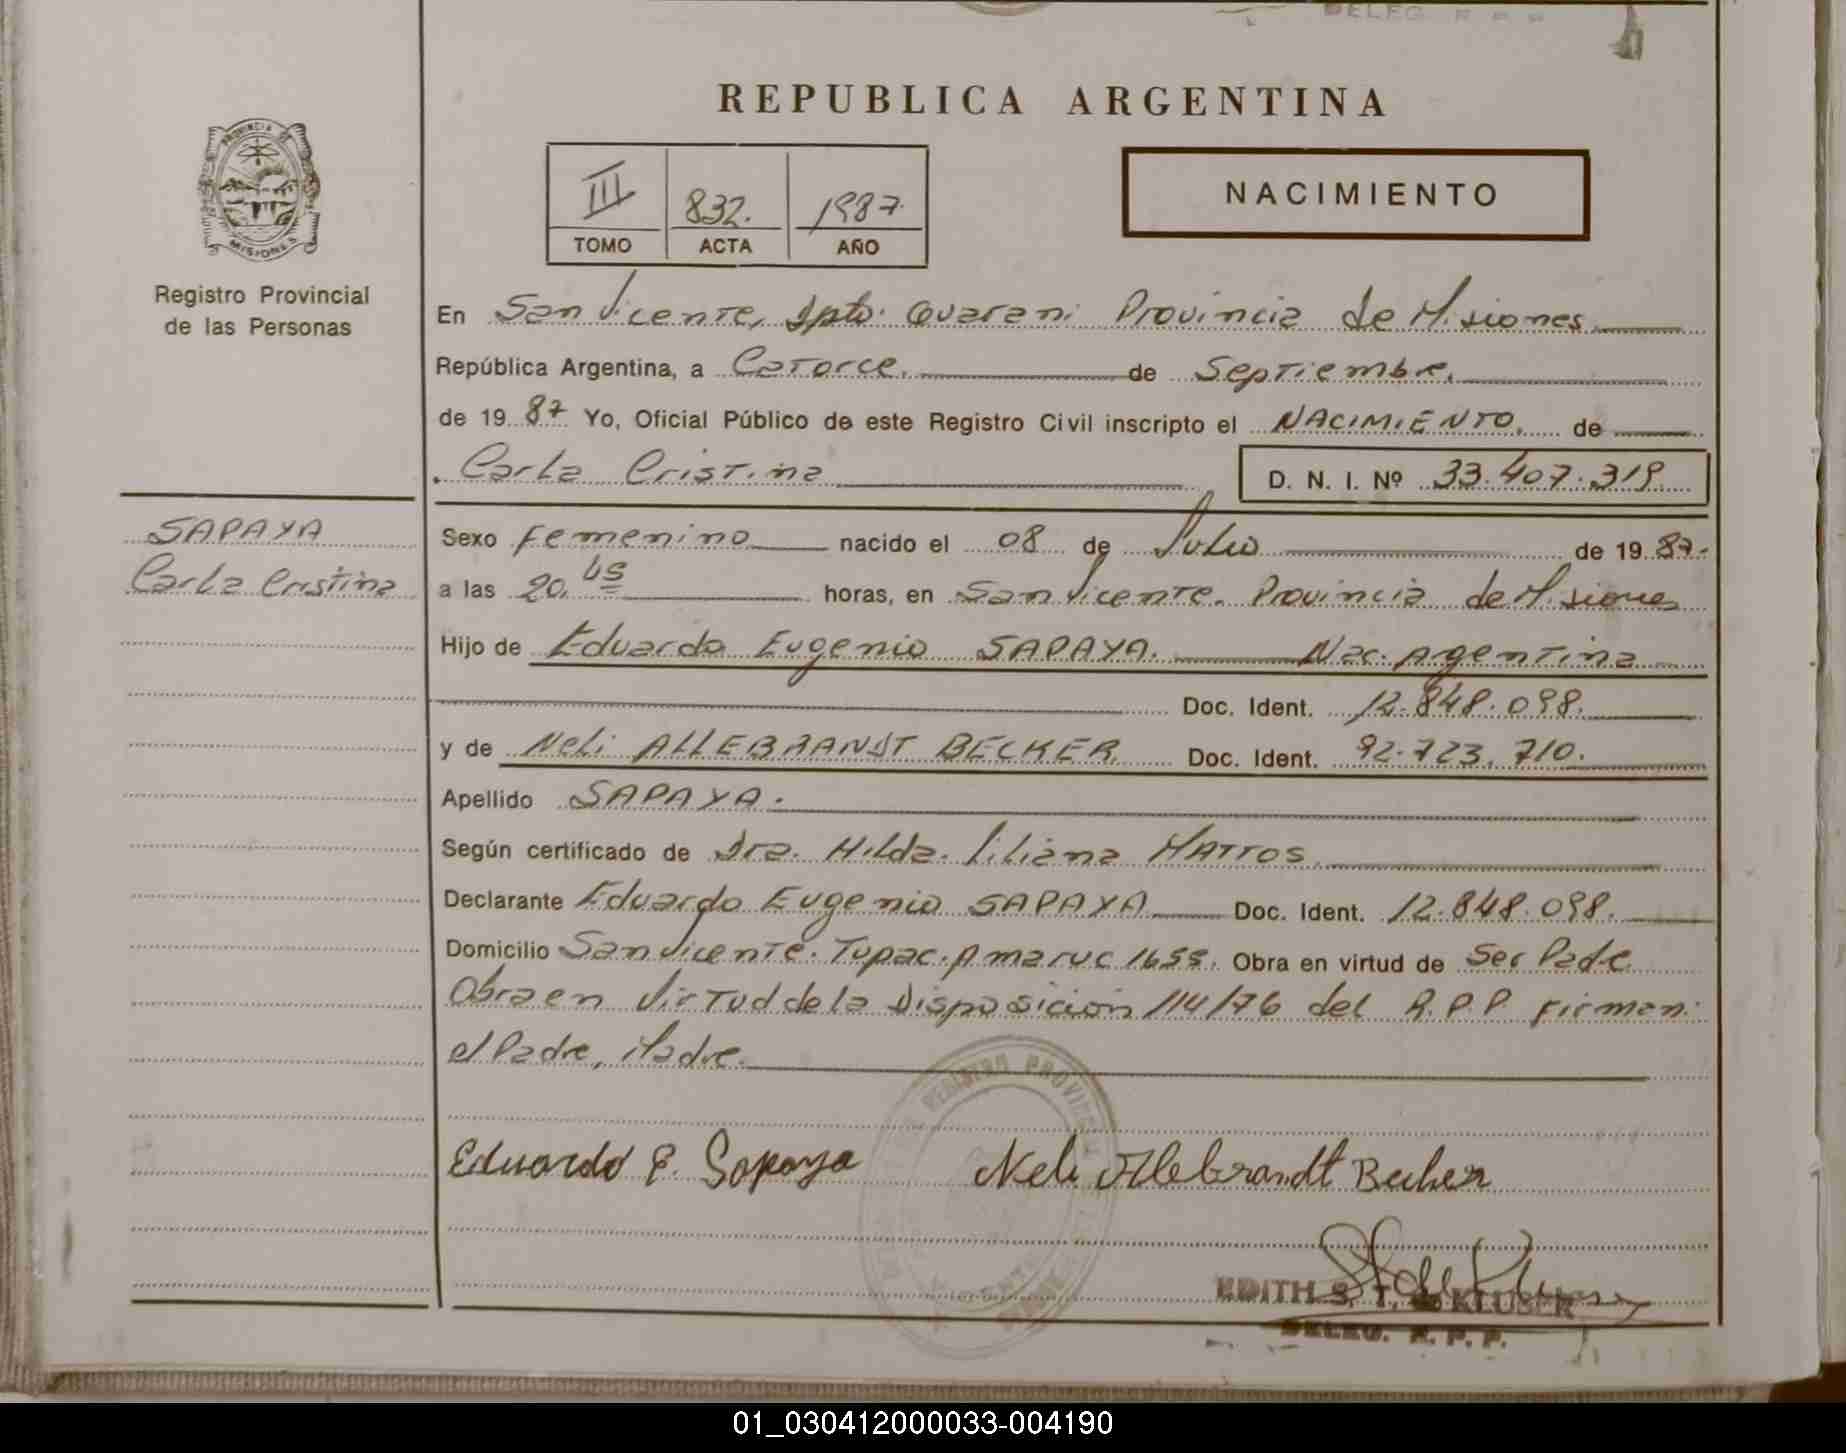 DELEG. R. P. P.
REPUBLICA ARGENTINA
III 832. 1987.
TOMO ACTA AÑO
NACIMIENTO
PROVINCIA DE
MISIONES
Registro Provincial
de las Personas
En San Vicente, Dpto. Guarani Provincia de Misiones.
República Argentina, a Catorce. de Septiembre.
de 19 87 Yo, Oficial Público de este Registro Civil inscripto el NACIMIENTO. de
Carla Cristina D. N. I. Nº 33.407.319
SAPAYA
Carla Cristina
Sexo Femenino nacido el 08 de Julio de 19 87.
a las 20,45 horas, en San Vicente. Provincia de Misiones
Hijo de Eduardo Eugenio SAPAYA. Nac. Agentina
Doc. Ident. 12.848.098.
y de Neli ALLEBRANDT BECKER Doc. Ident. 92.723.710.
Apellido SAPAYA.
Según certificado de Dra. Hilda. Liliana MATTOS.
Declarante Eduardo Eugenio SAPAYA Doc. Ident. 12.848.098.
Domicilio San Vicente. Tupac. Amaruc 1655. Obra en virtud de Ser Padre
Obra en Virtud de la Disposicion 114/76 del R.P.P firman:
el Padre, Madre.
REGISTRO PROVINCIAL
Eduardo E. Sapaya Neli Allebrandt Becker
EDITH S. T. de KLUSER
DELEG. R. P. P.
01_030412000033-004190